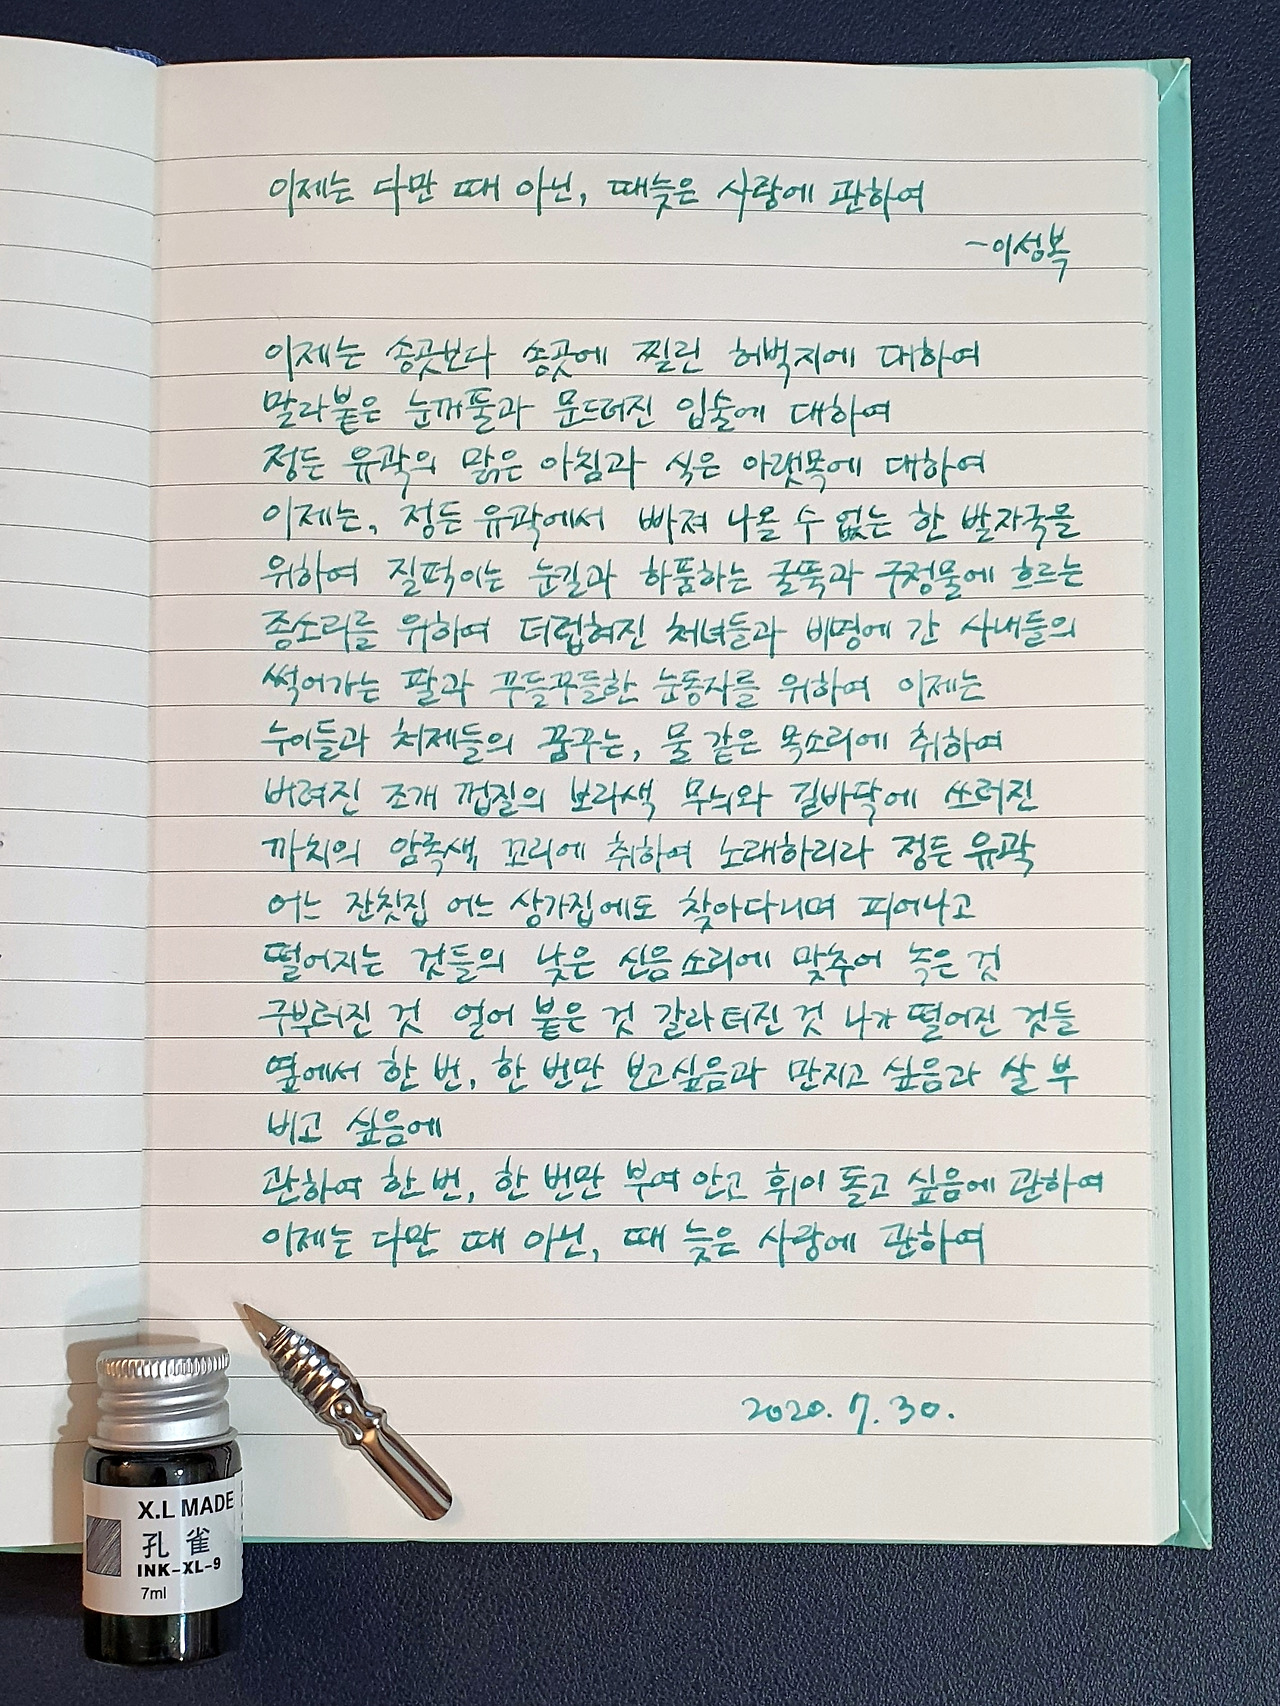 이제는 다만 때 아닌, 때늦은 사랑에 관하여
-이성복
이제는 송곳보다 송곳에 찔린 허벅지에 대하여
말라붙은 눈꺼풀과 문드러진 입술에 대하여
정든 유곽의 맑은 아침과 식은 아랫목에 대하여
이제는, 정든 유곽에서 빠져 나올 수 없는 한 발자국을
위하여 질퍽이는 눈길과 하품하는 굴뚝과 구정물에 흐르는
종소리를 위하여 더럽혀진 처녀들과 비명에 간 사내들의
썩어가는 팔과 꾸들꾸들한 눈동자를 위하여 이제는
누이들과 처제들의 꿈꾸는, 물 같은 목소리에 취하여
버려진 조개 껍질의 보라색 무늬와 길바닥에 쓰러진
까치의 암록색 꼬리에 취하여 노래하리라 정든 유곽
어느 잔칫집 어느 상가집에도 찾아다니며 피어나고
떨어지는 것들의 낮은 신음 소리에 맞추어 녹은 것
구부러진 것 얼어 붙은 것 갈라 터진 것 나가 떨어진 것들
옆에서 한 번, 한 번만 보고싶음과 만지고 싶음과 살 부
비고 싶음에
관하여 한 번, 한 번만 부여 안고 휘이 돌고 싶음에 관하여
이제는 다만 때 아닌, 때 늦은 사랑에 관하여
2020. 7. 30.
X.L MADE
孔雀
INK-XL-9
7ml